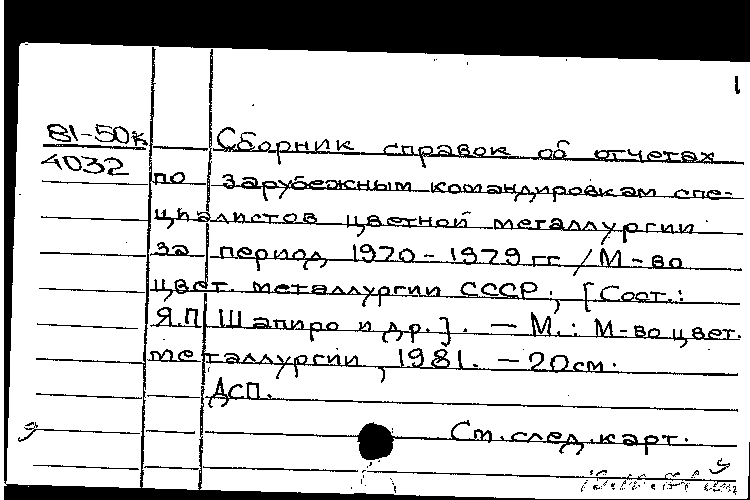 1
81-50к
4032
Сборник справок об отчетах
по зарубежным командировкам спе-
циалистов цветной металлургии
за период 1970-1979 гг / М-во
цвет. металлургии СССР; [Сост.:
Я.П. Шапиро и др.]. - М.: М-во цвет.
металлургии, 1981. - 20 см.
ДСП.
См. след. карт.